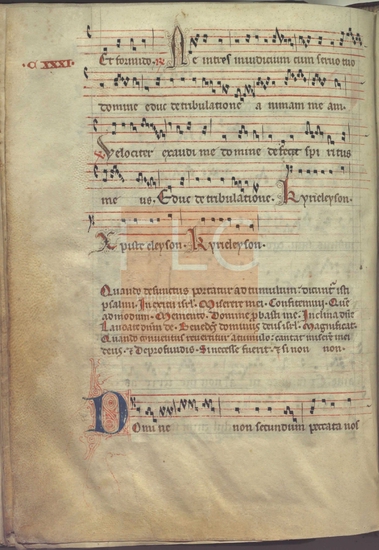 Et formido. R. Ne intres in iudicium cum servo tuo
CXXXI
domine educ de tribulatione animam me am.
Velociter exaudi me domine defecit spi ritus
me us. Educ de tribulatione. Kyrieleyson.
Xpiste eleyson. Kyrieleyson.
FLC
Quando defunctus portatur ad tumulum: dicunt
psalmi. In exitu isrl. Miserere mei. Confitemini.
admodum. Memento. Domine pbasti me. Inclina
Laudate dnm de. Benedictus dominus deus isrl. Magnificat.
Quando conventus revertitur a tumulo: cantat
deus. De profundis. fuerit. si non non.
Domi ne non secundum peccata nos